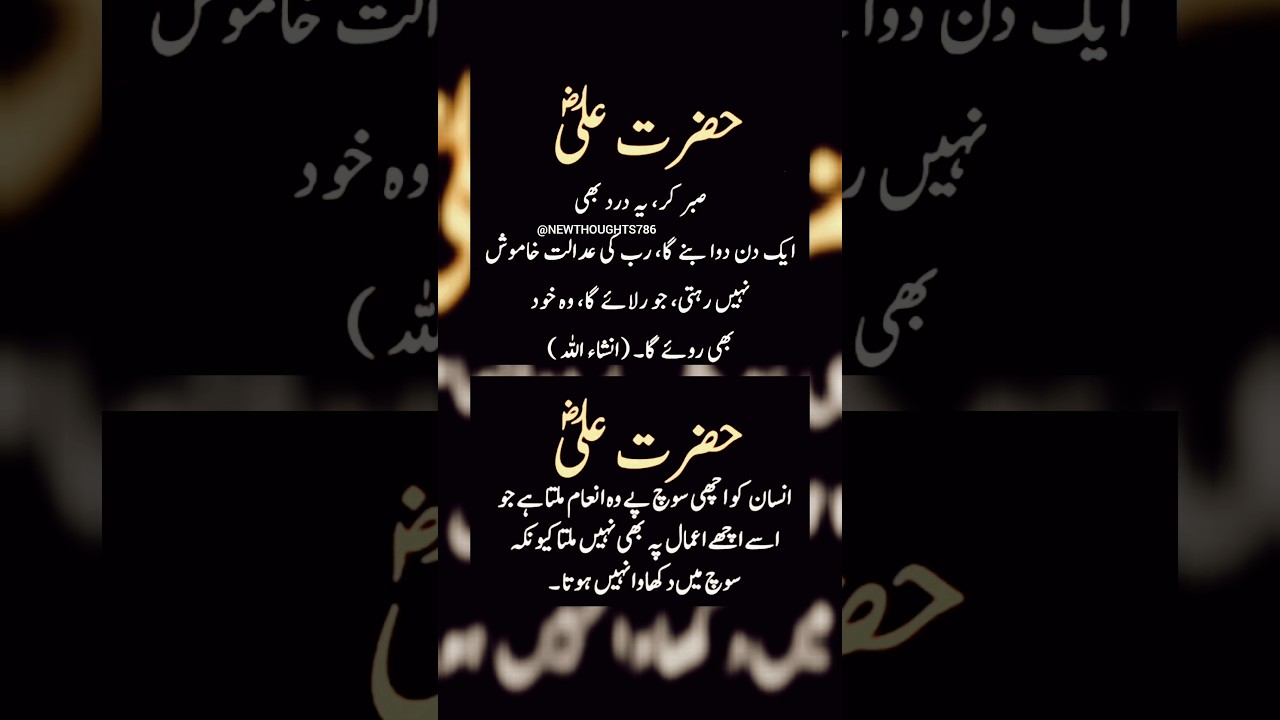 حضرت علیؓ
صبر کر، یہ درد بھی
@NEWTHOUGHTS786
ایک دن دوا بنے گا، رب کی عدالت خاموش
نہیں رہتی، جو رلائے گا، وہ خود
بھی روئے گا۔ (انشاء اللہ)
حضرت علیؓ
انسان کو اچھی سوچ پے وہ انعام ملتا ہے جو
اسے اچھے اعمال پہ بھی نہیں ملتا کیونکہ
سوچ میں دکھاوا نہیں ہوتا۔